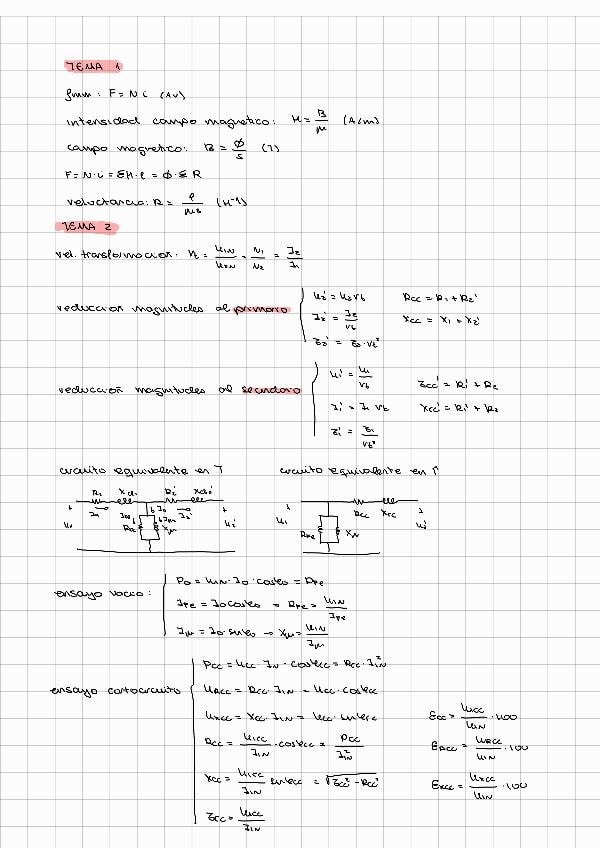 TEMA 1
fmm: F = N·i (Av)
intensidad campo magnetico: H = B/μ (A/m)
campo magnetico: B = Φ/S (T)
F = N·i = ΣH·l = Φ·ΣR
reluctancia: R = l/μs (H⁻¹)
TEMA 2
rel. transformacion: rt = U1N/U2N = N1/N2 = I2/I1
reduccion magnitudes al primario
U2' = U2 rt Rcc = R1 + R2'
I2' = I2/rt Xcc = X1 + X2'
Z2' = Z2·rt²
reduccion magnitudes al secundario
U1' = U1/rt Zcc' = R1' + R2
I1' = I1 rt Xcc' = R1' + R2
Z1' = Z1/rt²
circuito equivalente en T circuito equivalente en Γ
R1 Xd1 R2' Xd2'
I1 I0 I2'
U1 IFe Iμ U2'
RFe Xμ
Rcc Xcc
U1 RFe Xμ U2'
ensayo vacio:
P0 = U1N·I0·cosφ0 = PFe
IFe = I0 cosφ0 → RFe = U1N/IFe
Iμ = I0·senφ0 → Xμ = U1N/Iμ
ensayo cortocircuito
Pcc = Ucc·IN·cosφcc = Rcc·I1N²
URcc = Rcc·I1N = Ucc·cosφcc
UXcc = Xcc·I1N = Ucc·senφcc
Rcc = U1cc/I1N·cosφcc = Pcc/I1N²
Xcc = U1cc/I1N senφcc = √Zcc² - Rcc²
Zcc = U1cc/I1N
εcc = U1cc/U1N·100
εRcc = URcc/U1N·100
εXcc = UXcc/U1N·100